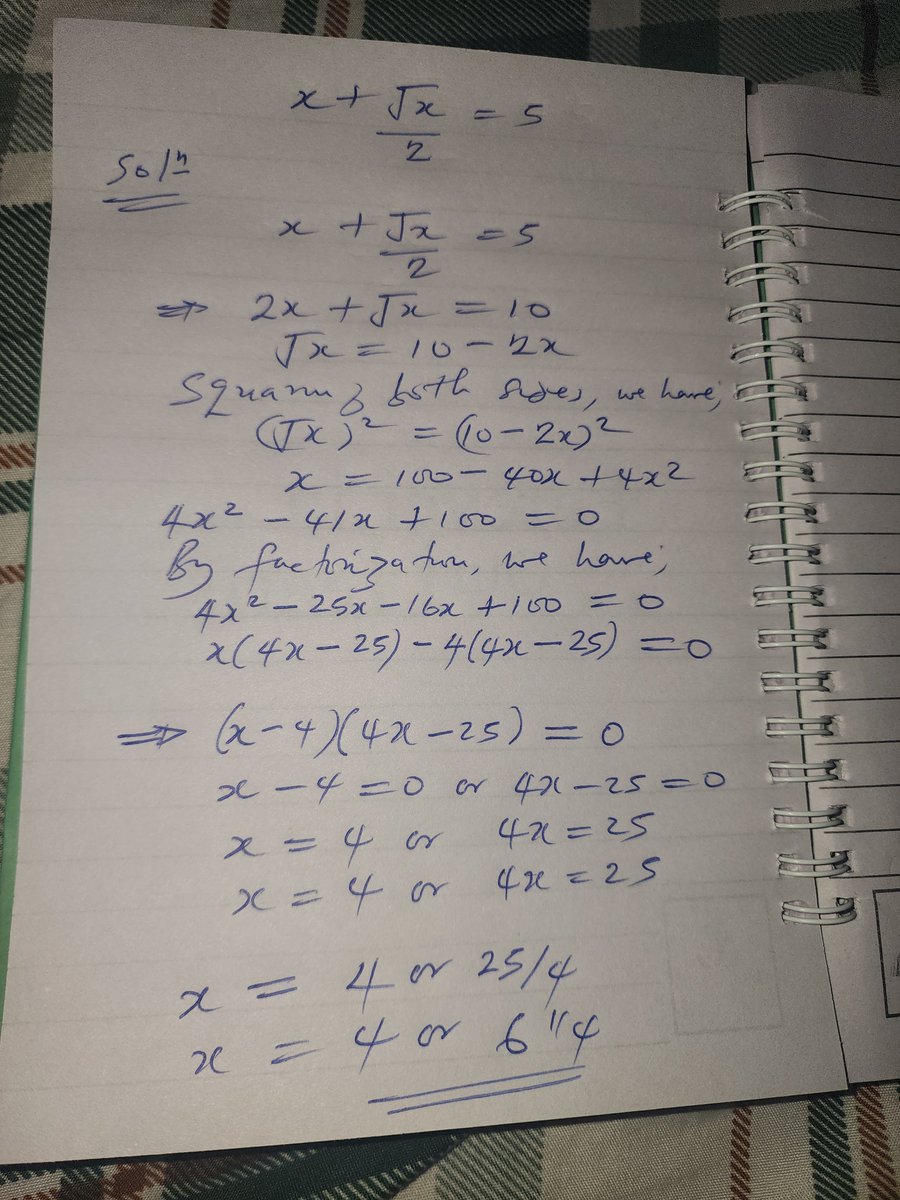 x + √x/2 = 5
Solⁿ
x + √x/2 = 5
⇒ 2x + √x = 10
√x = 10 - 2x
Squaring both sides, we have;
(√x)² = (10 - 2x)²
x = 100 - 40x + 4x²
4x² - 41x + 100 = 0
By factorization, we have;
4x² - 25x - 16x + 100 = 0
x(4x - 25) - 4(4x - 25) = 0
⇒ (x - 4)(4x - 25) = 0
x - 4 = 0 or 4x - 25 = 0
x = 4 or 4x = 25
x = 4 or 4x = 25
x = 4 or 25/4
x = 4 or 6 1/4